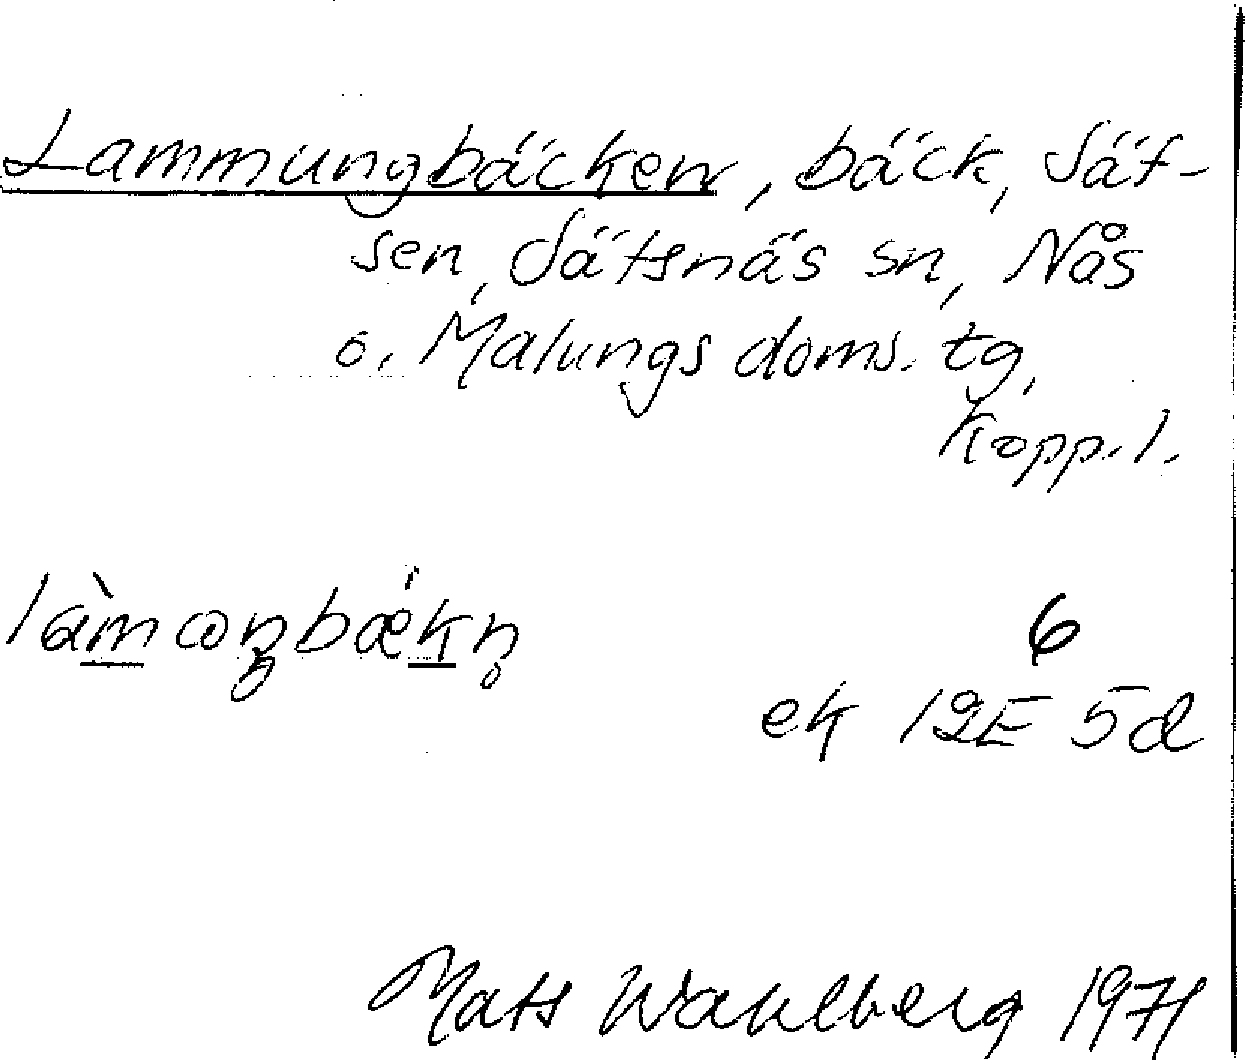 Lammungbäcken, bäck, Säf-
sen, Säfsnäs sn, Nås
o. Malungs doms. tg,
Kopp. l.
làm̲ωŋbǽk̲n̥
6
ek 12E 5d
Mats Wahlberg 1971